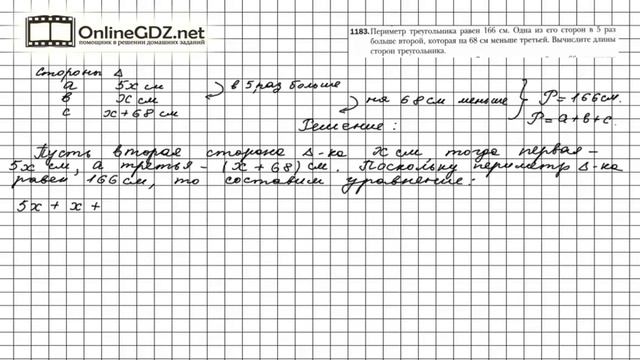 OnlineGDZ.net
помощник в решении домашних заданий
1183. Периметр треугольника равен 166 см. Одна из его сторон в 5 раз
больше второй, которая на 68 см меньше третьей. Вычислите длины
сторон треугольника.
Стороны Δ
a 5x см
в x см
c x + 68 см
в 5 раз больше
на 68 см меньше
P = 166 см.
P = a + в + c.
Решение:
Пусть вторая сторона Δ-ка x см тогда первая –
5x см, а третья – (x + 68) см. Поскольку периметр Δ-ка
равен 166 см, то составим уравнение:
5x + x +